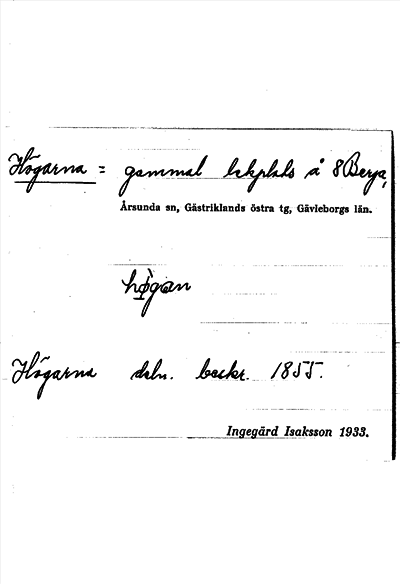 Högarna = gammal lekplats å 8 Berga,
Årsunda sn, Gästriklands östra tg, Gävleborgs län.
hø̀gan
Högarna dsbn. beskr. 1855.
Ingegärd Isaksson 1933.